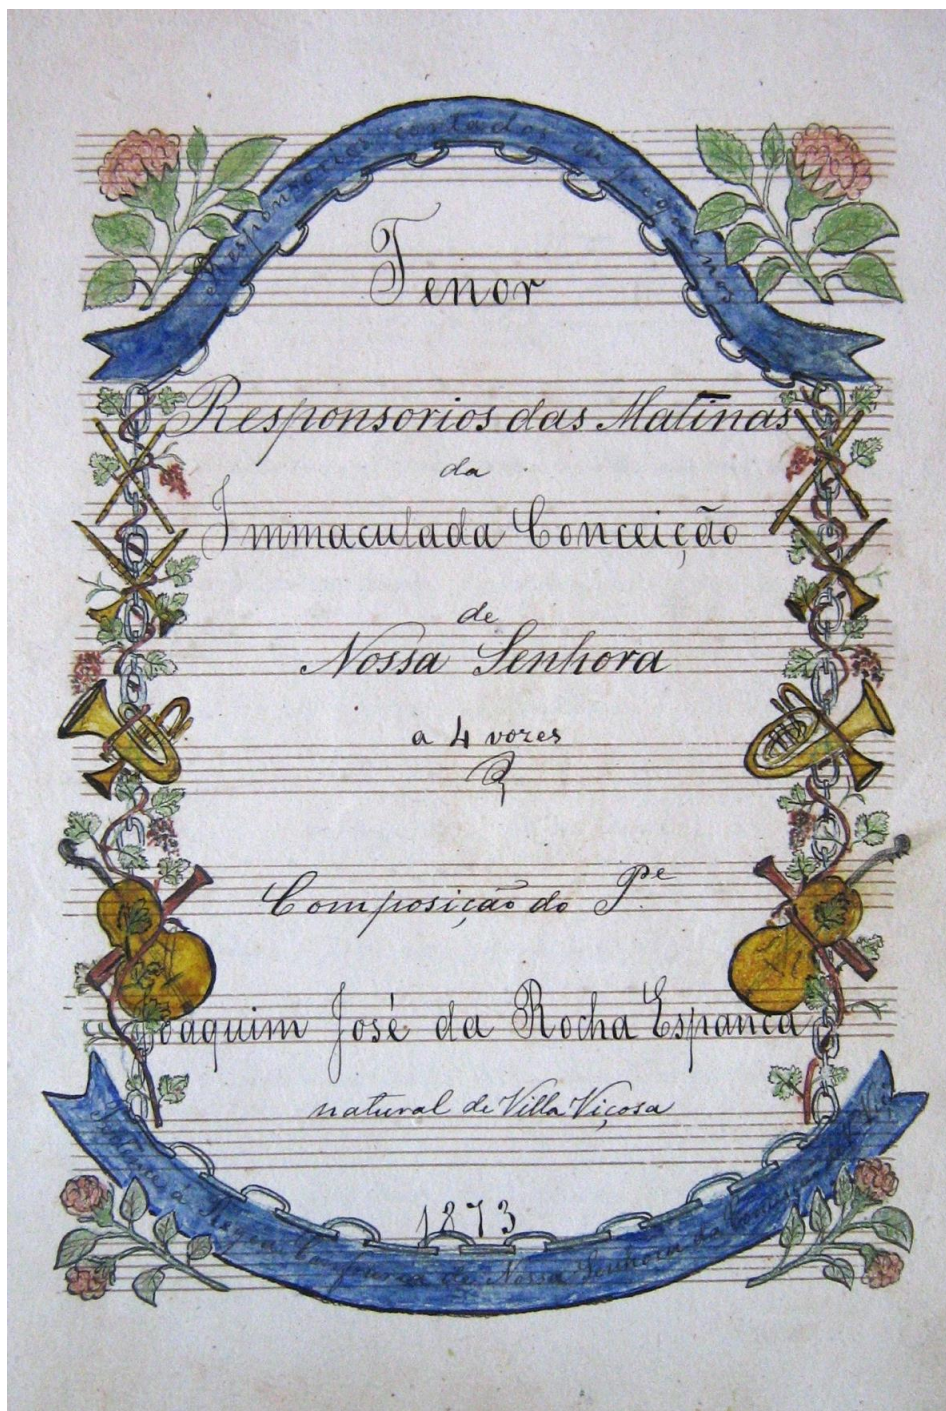 Responsorios cantados em pequenos
Tenor
Responsorios das Matinas
da
Immaculada Conceição
de
Nossa Senhora
a 4 vozes
Composição do Pe
Joaquim José da Rocha Espanca
natural de Villa Viçosa
1873
Pertence a Regia Confraria de Nossa Senhora da Conceição de